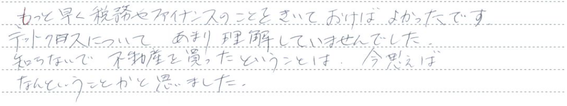 もっと早く税務やファイナンスのことをきいておけばよかったです
デットクロスについて あまり理解していませんでした.
知らないで 不動産を買ったということは. 今思えば
なんということかと思いました.